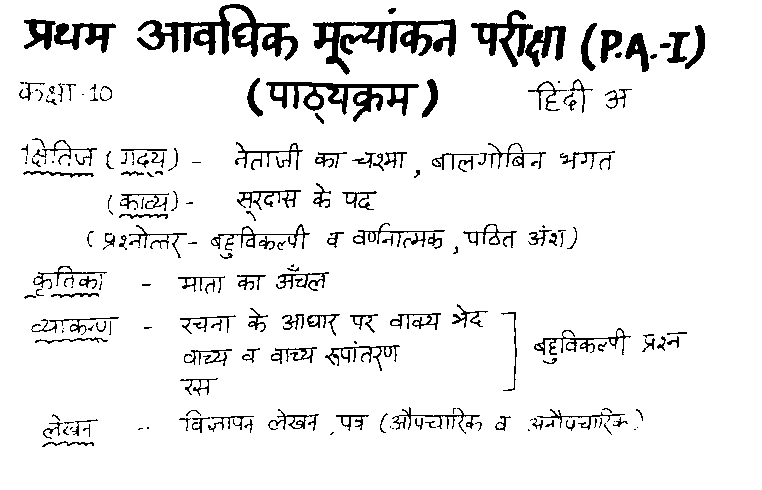 प्रथम आवधिक मूल्यांकन परीक्षा (P.A.-I)
कक्षा-10 (पाठ्यक्रम) हिंदी अ
क्षितिज (गद्य) - नेताजी का चश्मा, बालगोबिन भगत
(काव्य) - सूरदास के पद
(प्रश्नोत्तर - बहुविकल्पी व वर्णनात्मक, पठित अंश)
कृतिका - माता का अँचल
व्याकरण - रचना के आधार पर वाक्य भेद
वाच्य व वाच्य रूपांतरण
बहुविकल्पी प्रश्न
रस
लेखन - विज्ञापन लेखन, पत्र (औपचारिक व अनौपचारिक)